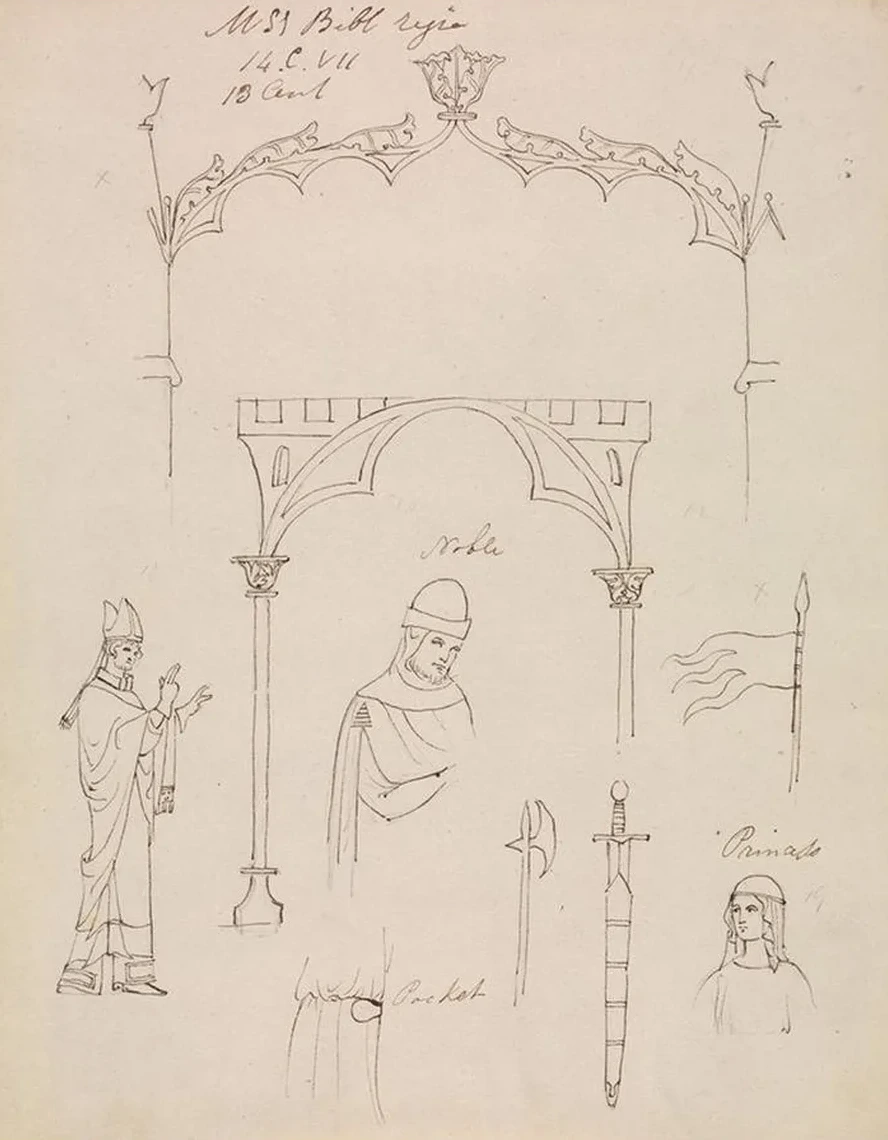 MSS Bibl regia
14.C.VII
13 Cent
Noble
Princess
Pocket